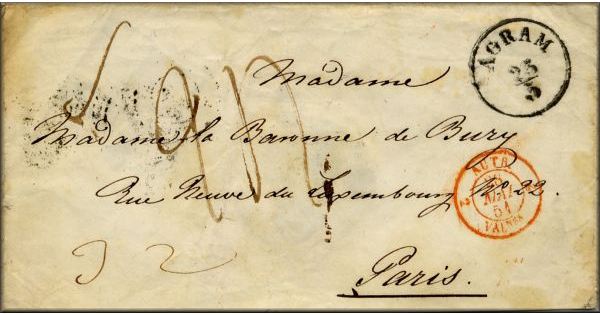 AGRAM
25
5
Madame
Madame la Baronne de Bury
Rue Neuve du Luxembourg No 22.
Paris.
AUTR.
2
51
VALNES
32